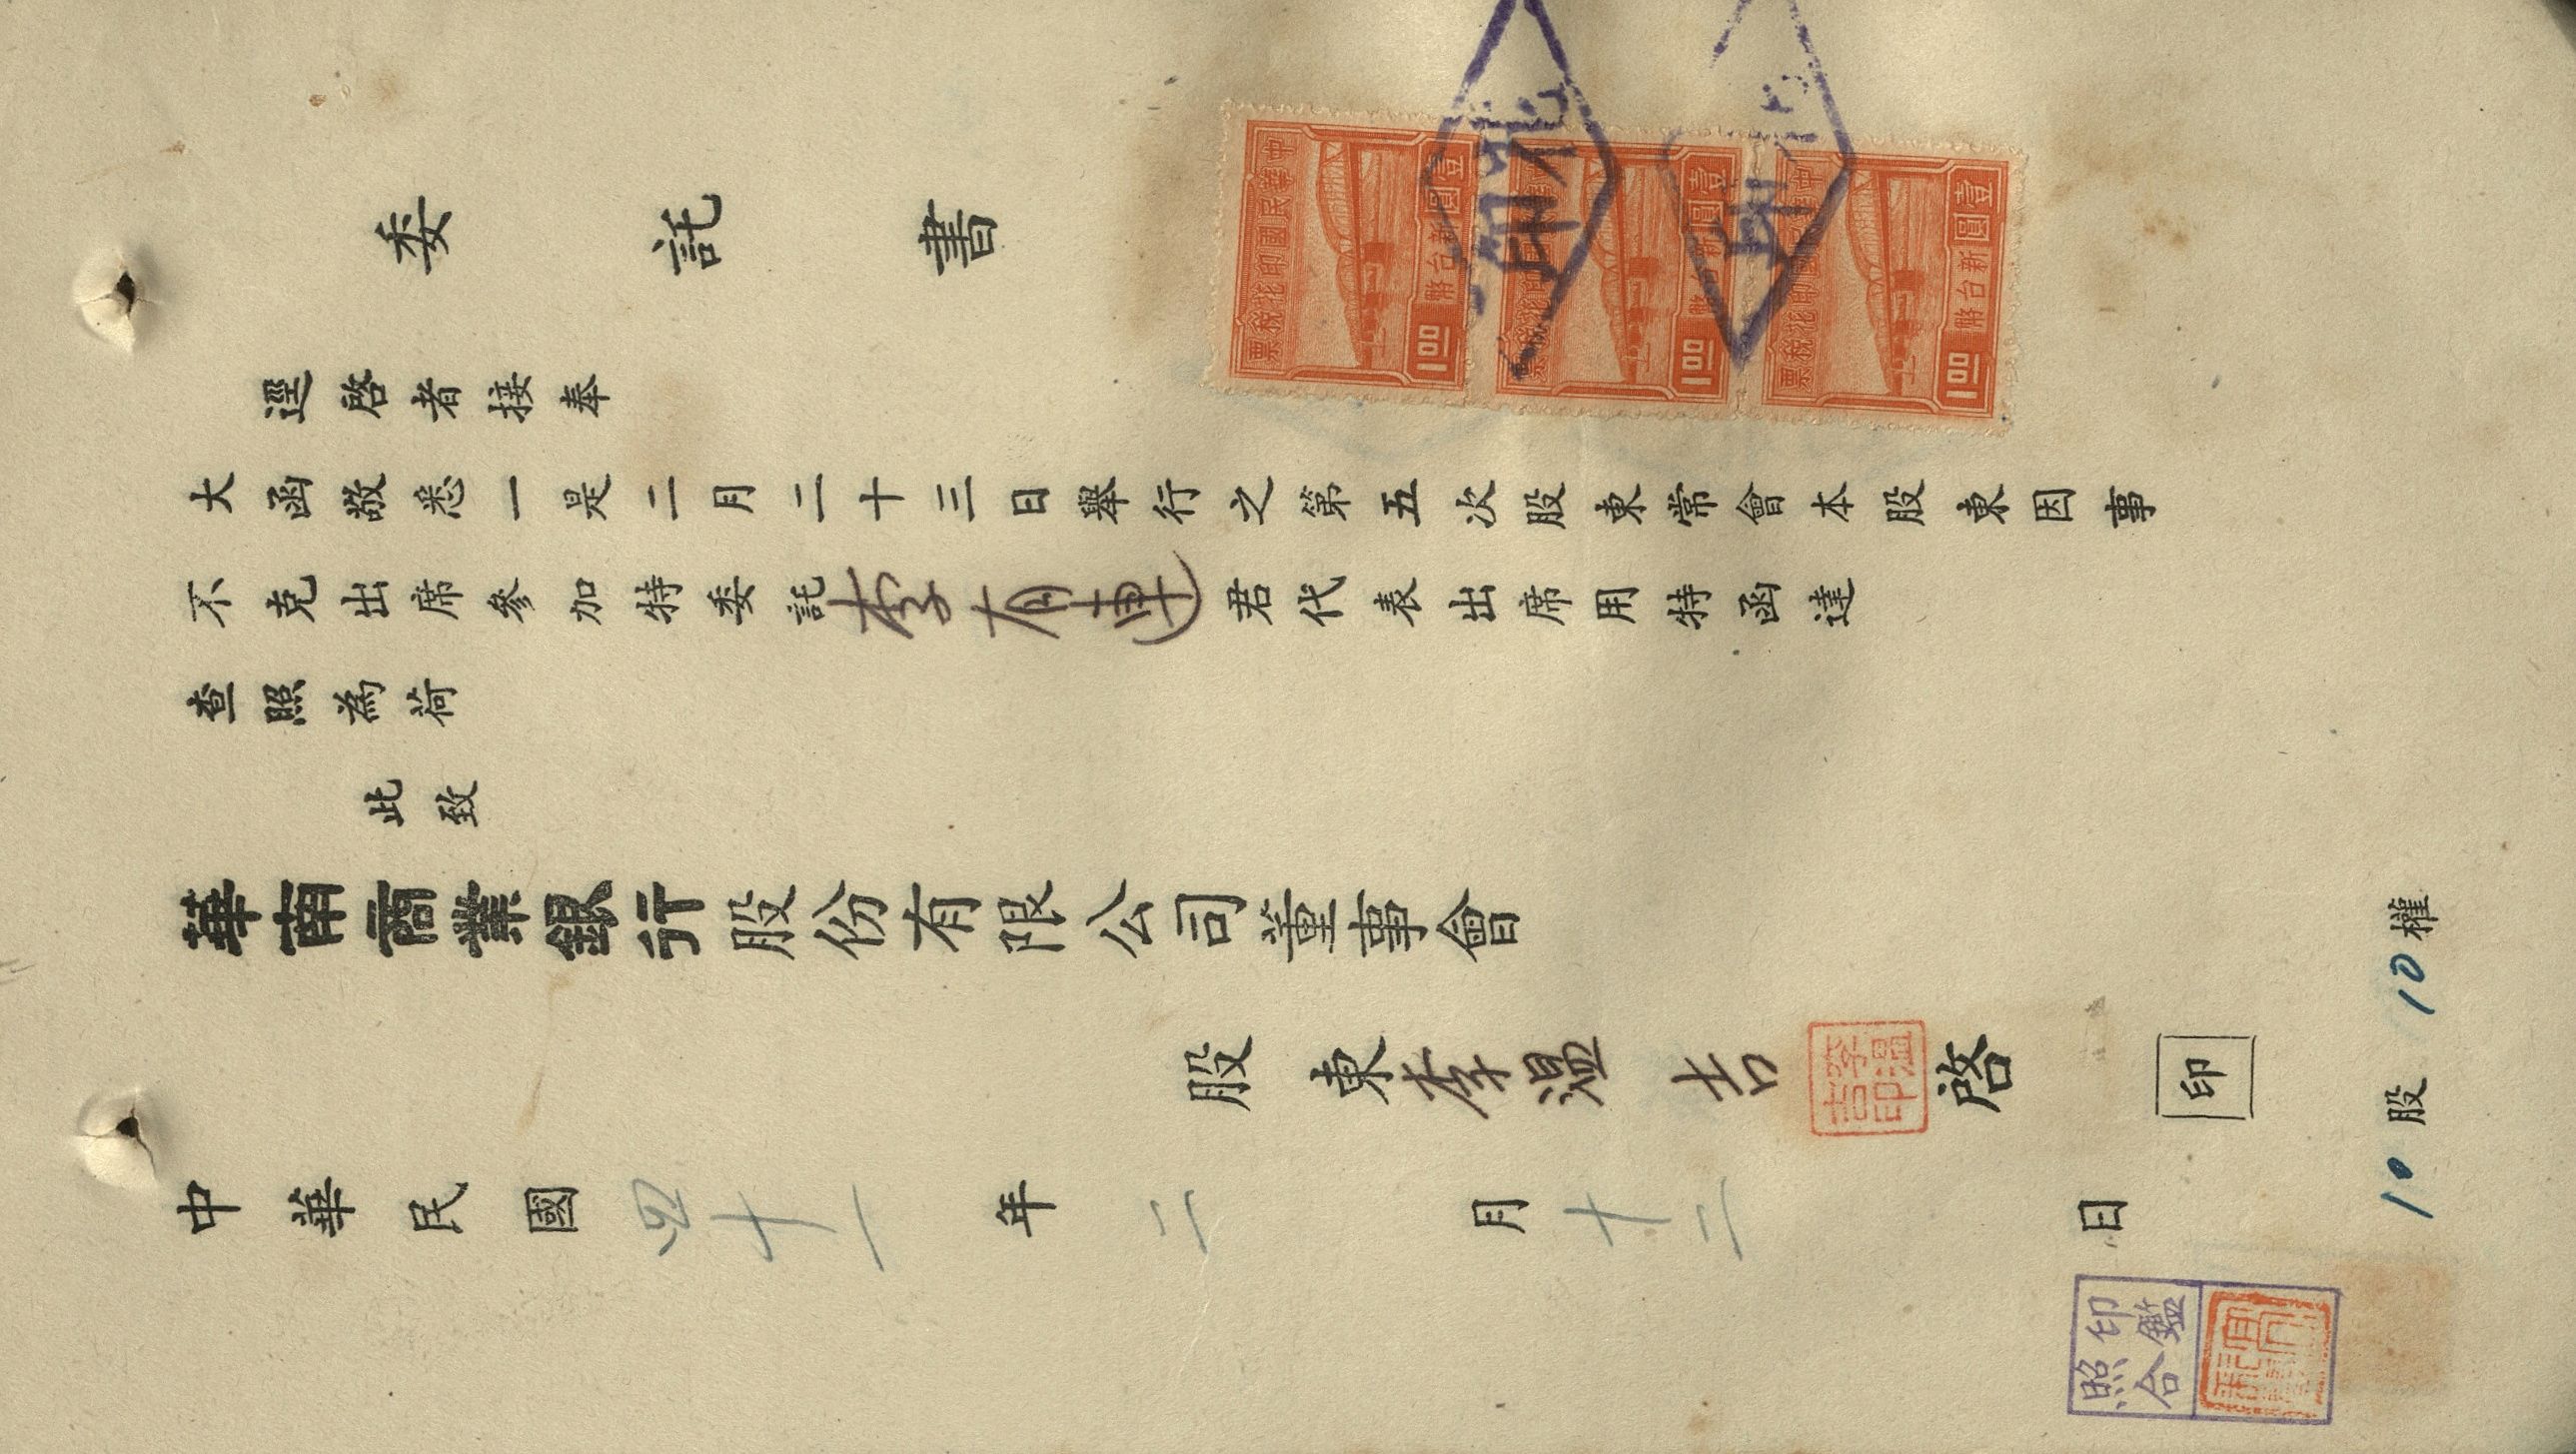 委託書
逕啓者接奉
大函敬悉一是二月二十三日舉行之第五次股東常會本股東因事
不克出席參加特委託李有連君代表出席用特函達
查照為荷
此致
華南商業銀行股份有限公司董事會
股東李溫吉啓
李溫吉印
印
中華民國四十一年二月十二日
10股 10權
印鑑
照合
中華民國印花稅票
壹圓新台幣
1.00
中華民國印花稅票
壹圓新台幣
1.00
中華民國印花稅票
壹圓新台幣
1.00